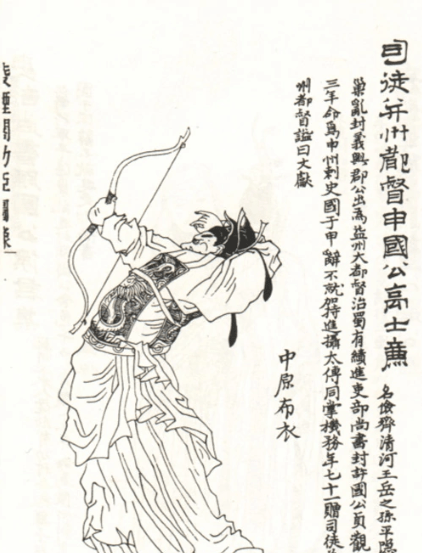 司徒并州都督申國公高士廉 名儉齊清河王岳之孫平隱
巢亂封義興郡公出為益州大都督治蜀有績進吏部尚書封許國公貞觀
三年命為申州刺史國于申辭不就加特進攝太傅同掌機務年七十一贈司徒并
州都督諡曰文獻
中原布衣
凌煙閣功臣圖像